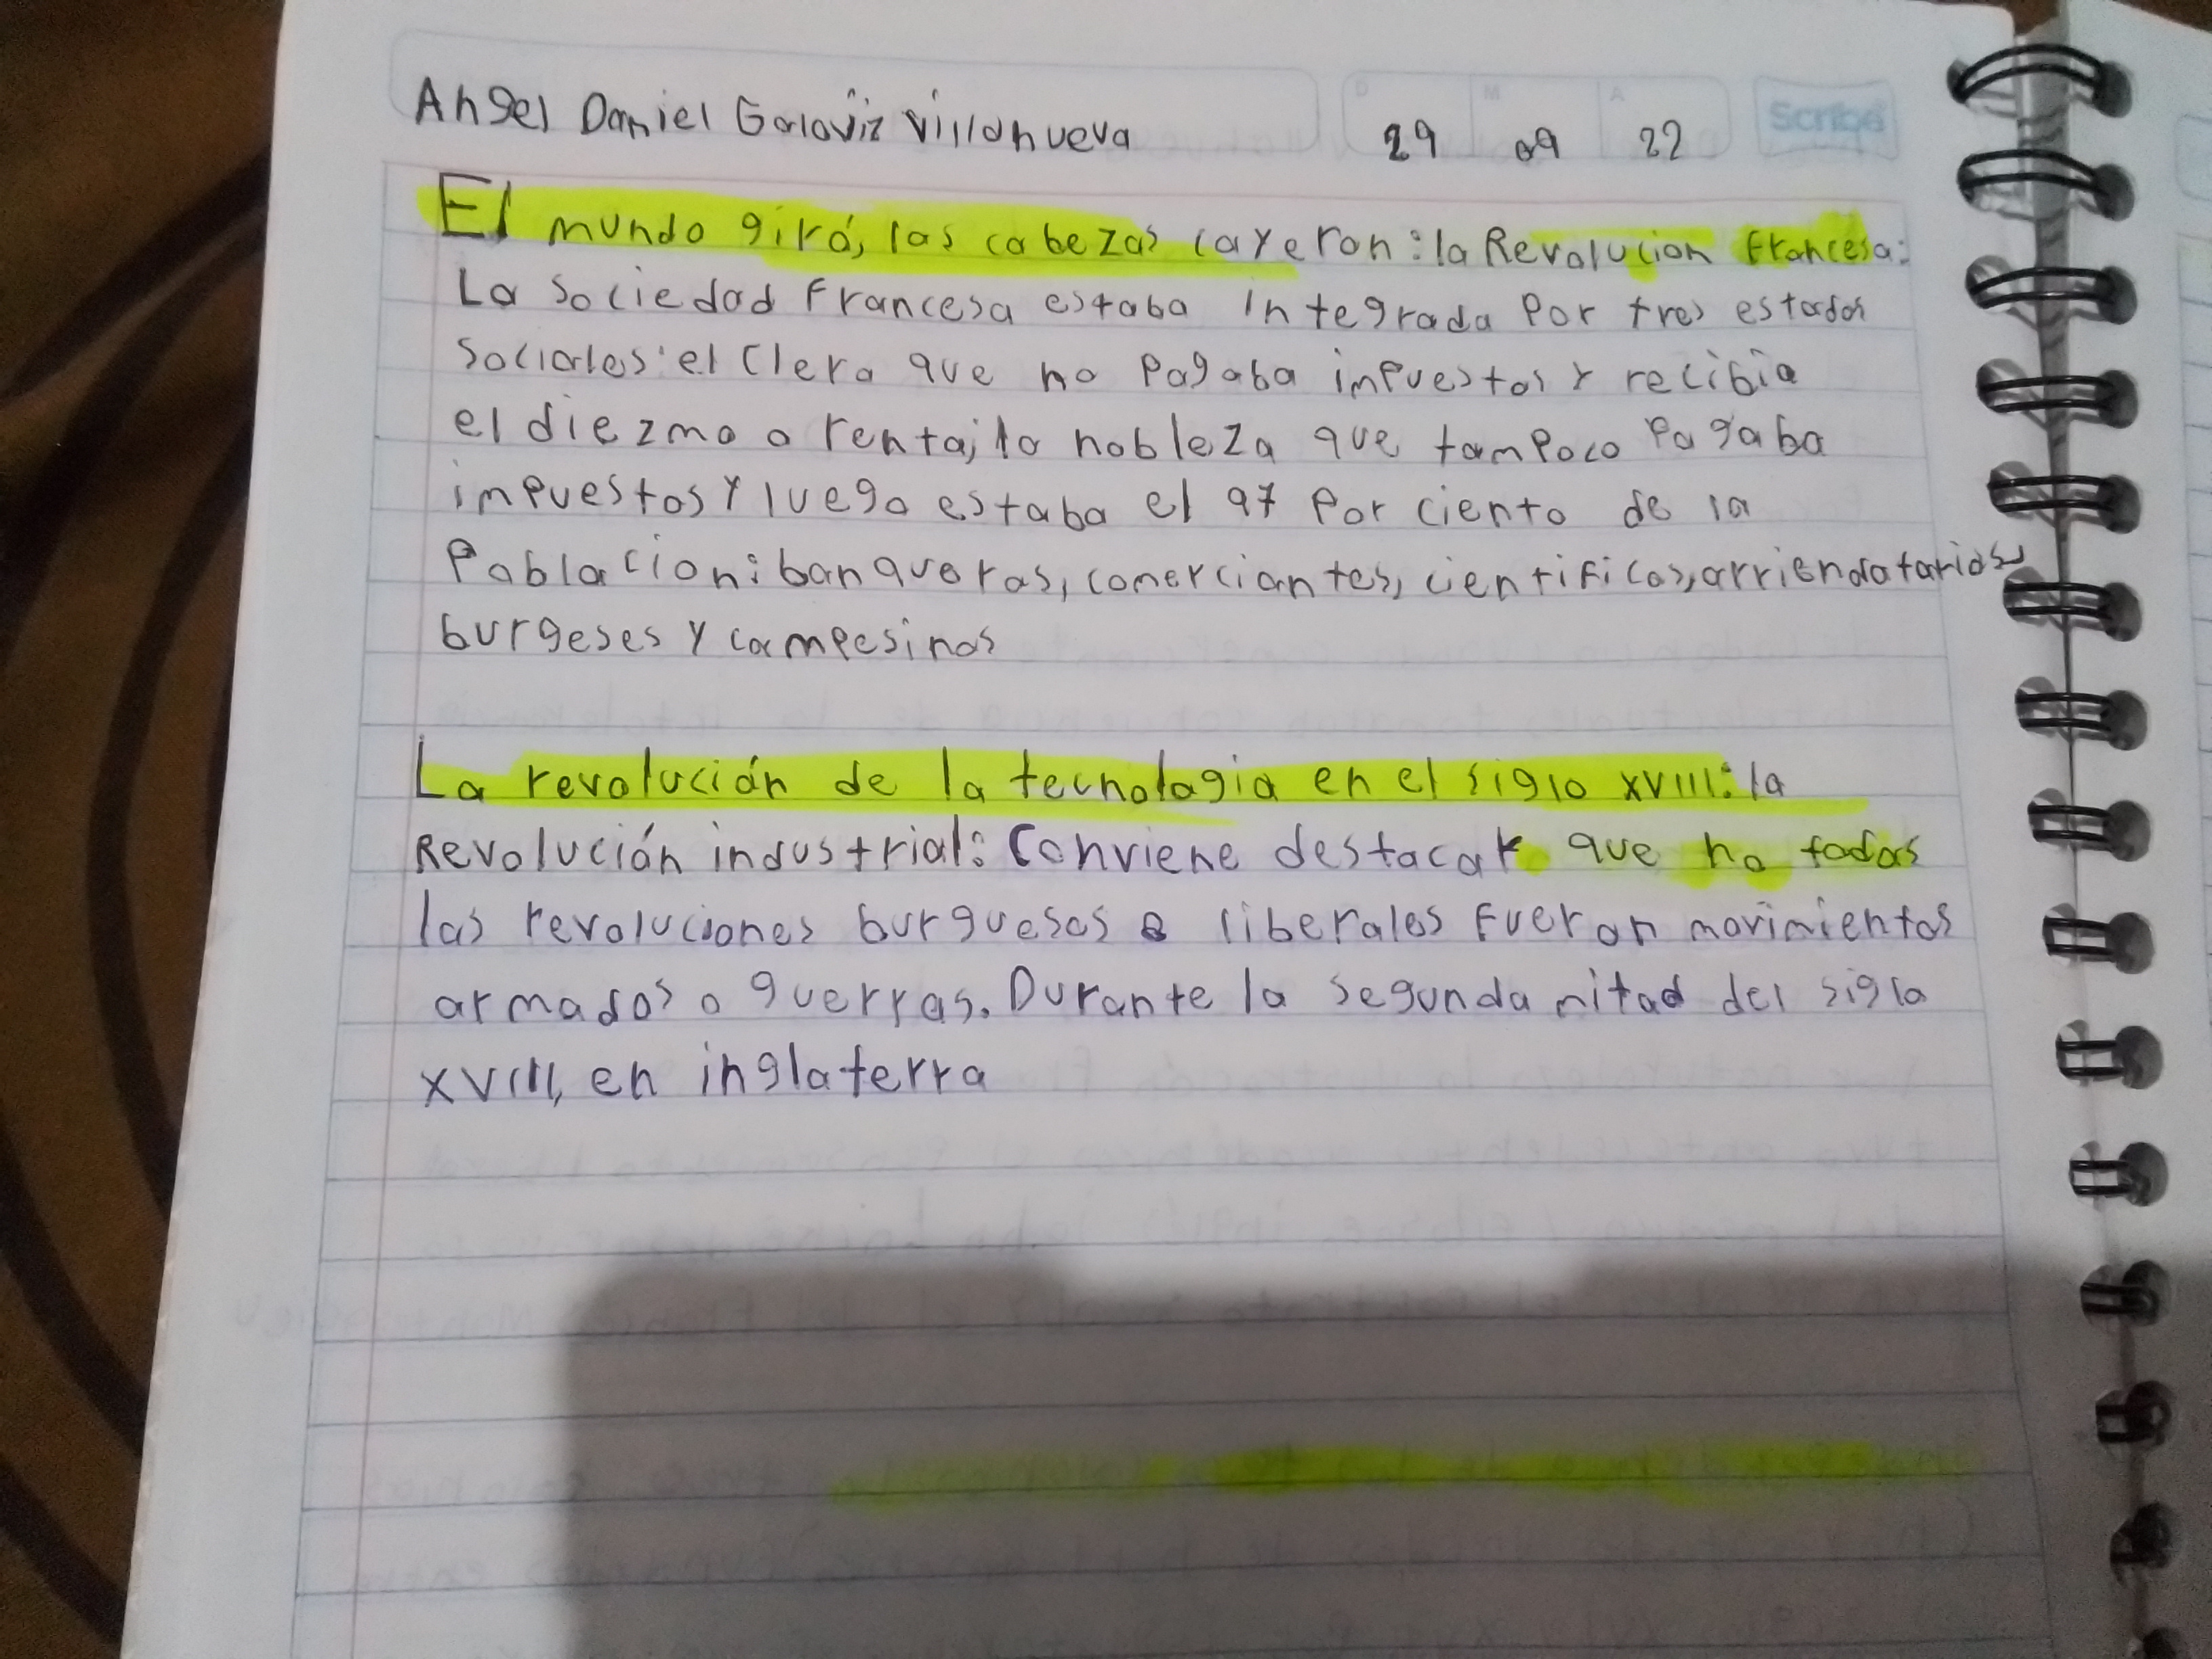 Angel Daniel Galaviz Villanueva 29 09 22
Scribe
El mundo giró, las cabezas cayeron: la Revolucion Francesa:
La sociedad Francesa estaba integrada por tres estados
sociales: el Clero que no pagaba impuestos y recibia
el diezmo o renta; la nobleza que tampoco pagaba
impuestos y luego estaba el 97 por ciento de la
poblacion: banqueros, comerciantes, cientificos, arriendatarios
burgeses y campesinos
La revolución de la tecnologia en el siglo XVIII: la
Revolución industrial: Conviene destacar que no todas
las revoluciones burguesas o liberales fueron movimientos
armados o guerras. Durante la segunda mitad del siglo
XVIII, en inglaterra